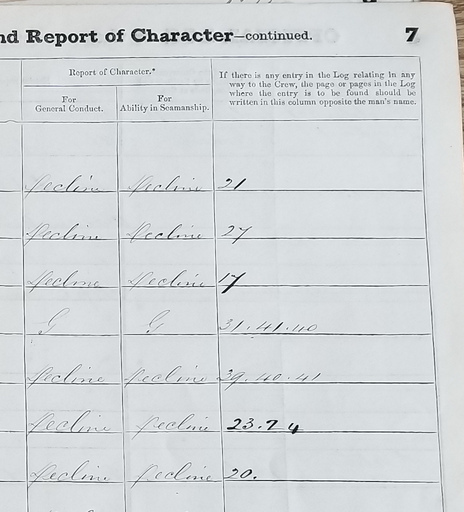 nd Report of Character—continued. 7
Report of Character.*
For General Conduct.
For Ability in Seamanship.
If there is any entry in the Log relating in any
way to the Crew, the page or pages in the Log
where the entry is to be found should be
written in this column opposite the man's name.
Decline Decline 21
Decline Decline 27
Decline Decline 17
G G 31.41.40
Decline Decline 39.40.41
Decline Decline 23.24
Decline Decline 20.